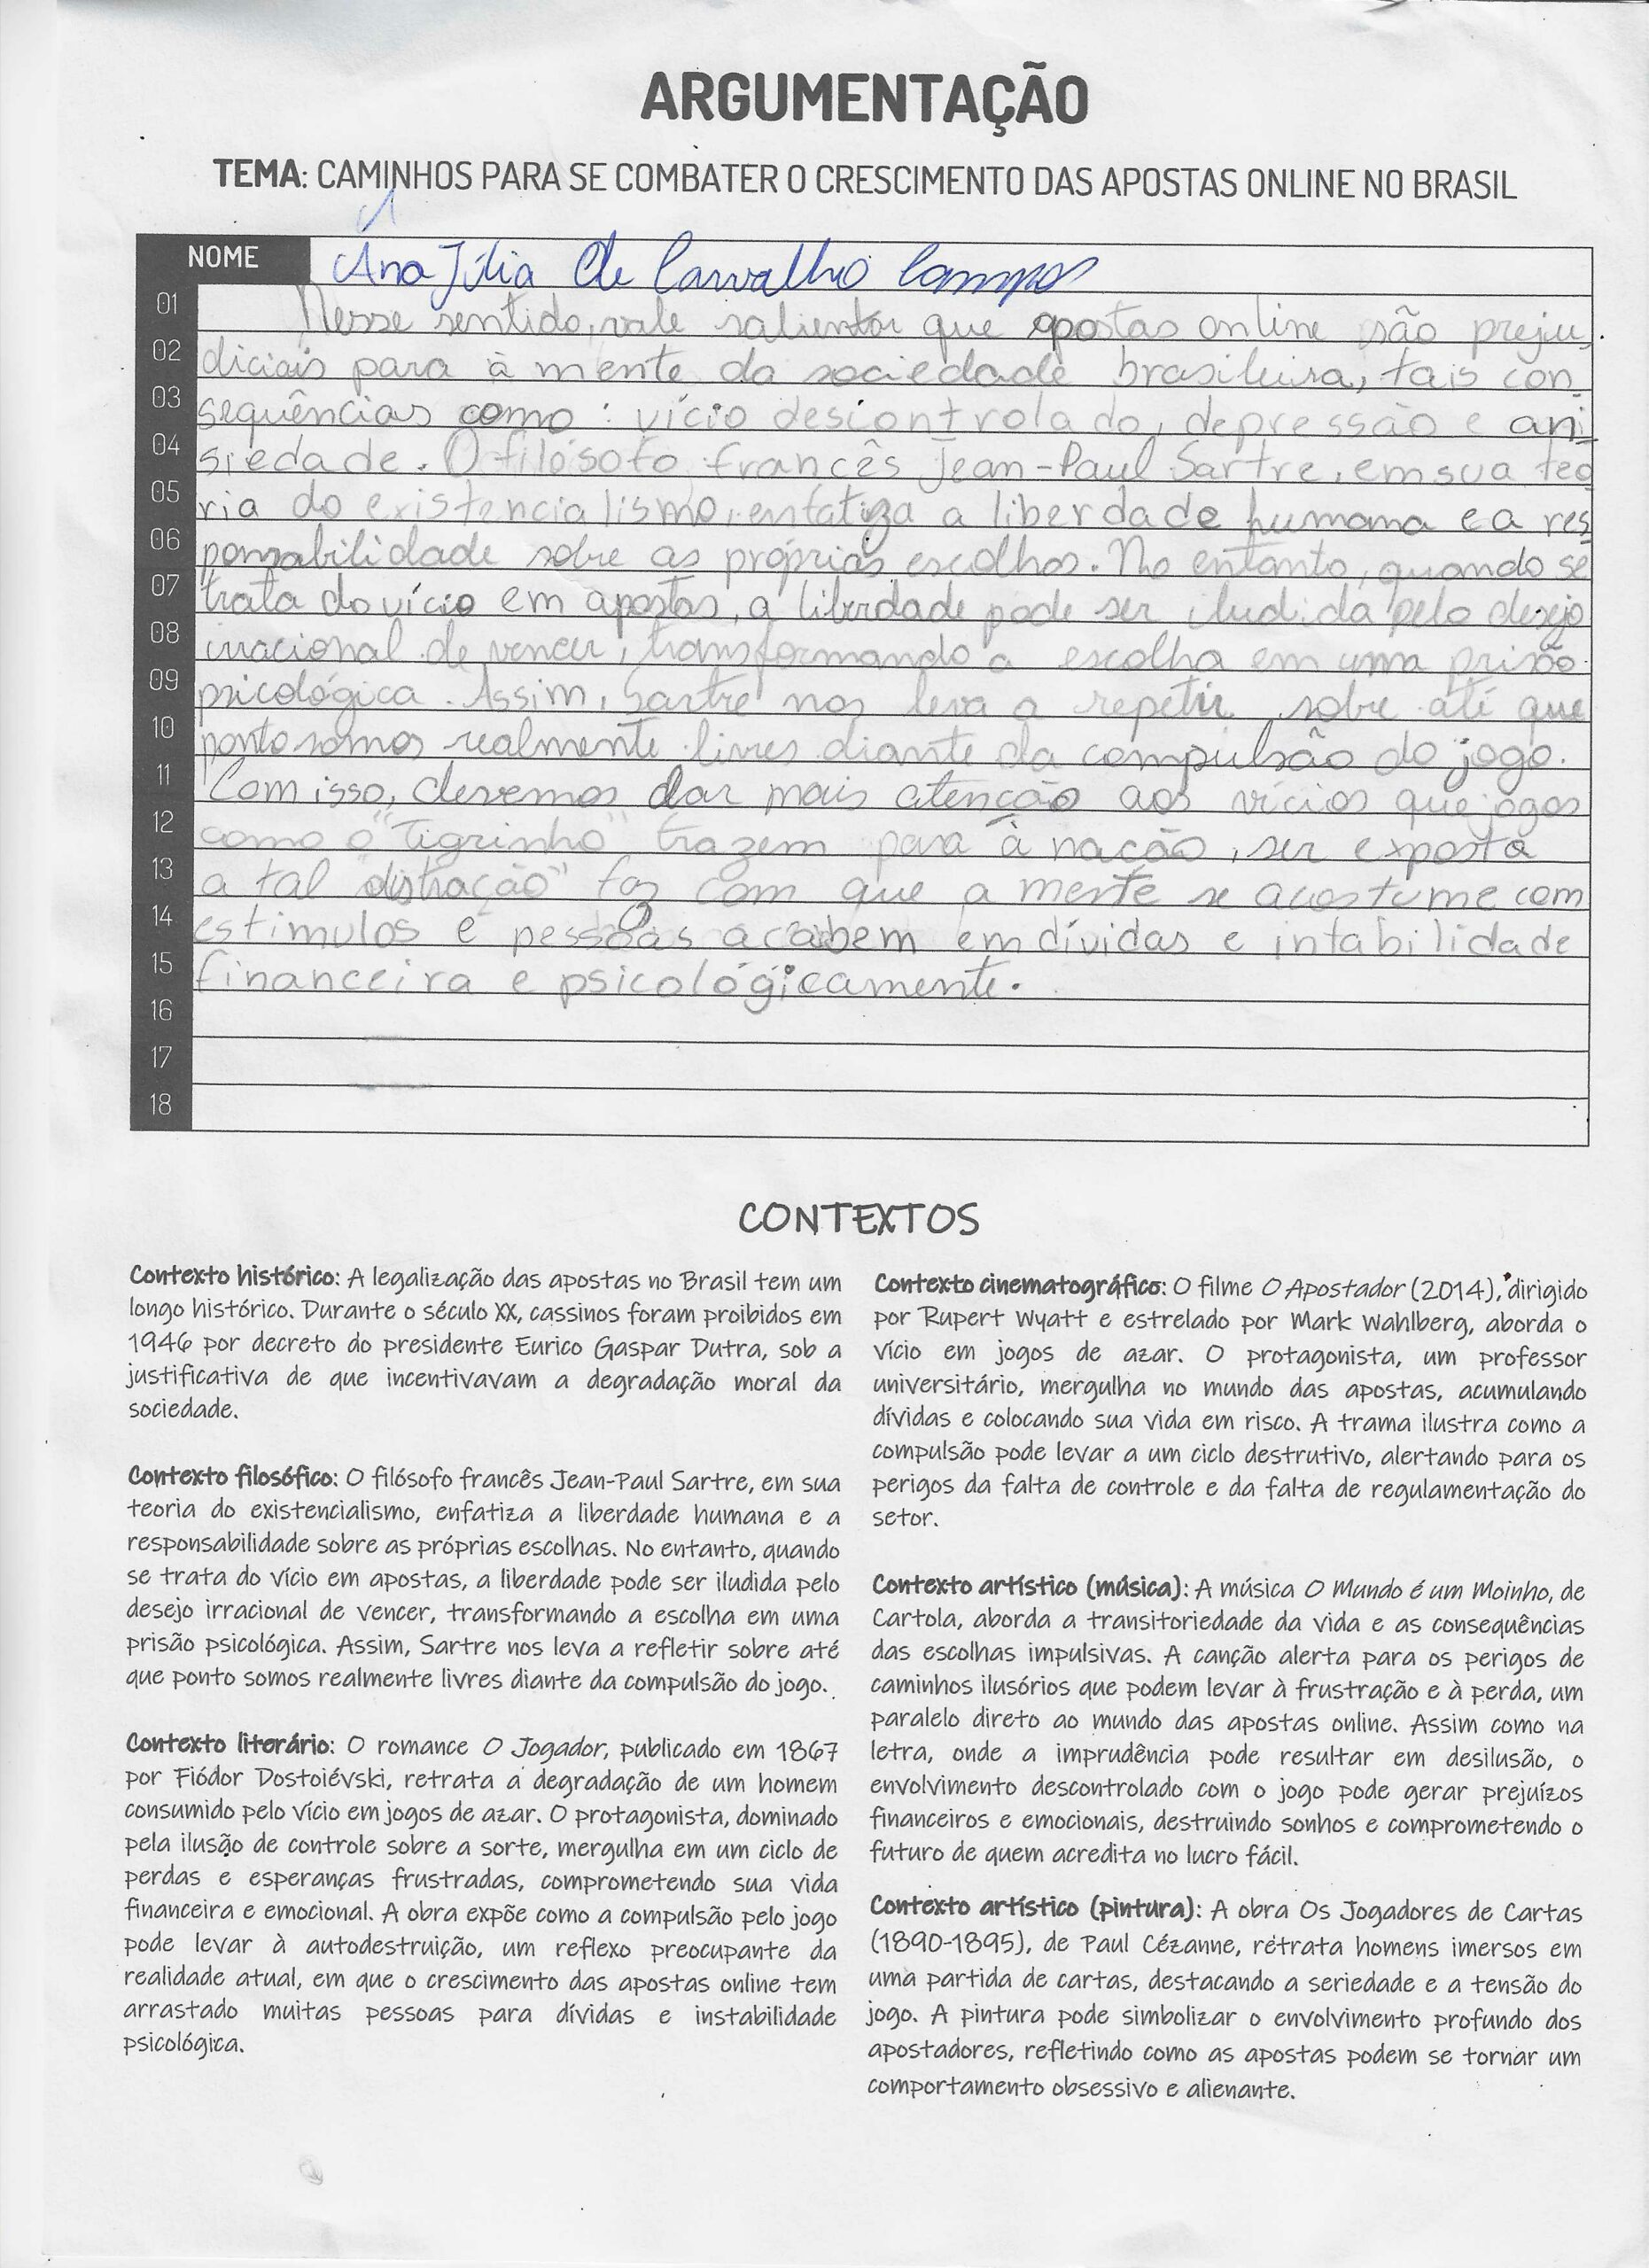 ARGUMENTAÇÃO
TEMA: CAMINHOS PARA SE COMBATER O CRESCIMENTO DAS APOSTAS ONLINE NO BRASIL
NOME Ana Júlia de Carvalho Campos
01 Nesse sentido, vale salientar que apostas online são preju
02 diciais para à mente da sociedade brasileira, tais con
03 sequências como: vício descontrolado, depressão e an
04 siedade. O filósofo francês Jean-Paul Sartre, em sua teo
05 ria do existencialismo, enfatiza a liberdade humana e a res
06 ponsabilidade sobre as próprias escolhas. No entanto, quando se
07 trata do vício em apostas, a liberdade pode ser iludida pelo desejo
08 irracional de vencer, transformando a escolha em uma prisão
09 psicológica. Assim, Sartre nos leva a repetir sobre até que
10 ponto somos realmente livres diante da compulsão do jogo.
11 Com isso, devemos dar mais atenção aos vícios que jogos
12 como o "Tigrinho" trazem para à nação, ser exposta
13 a tal "distração" faz com que a mente se acostume com
14 estimulos e pessoas acabem em dívidas e intabilidade
15 financeira e psicológicamente.
16
17
18
CONTEXTOS
Contexto histórico: A legalização das apostas no Brasil tem um
longo histórico. Durante o século XX, cassinos foram proibidos em
1946 por decreto do presidente Eurico Gaspar Dutra, sob a
justificativa de que incentivavam a degradação moral da
sociedade.
Contexto filosófico: O filósofo francês Jean-Paul Sartre, em sua
teoria do existencialismo, enfatiza a liberdade humana e a
responsabilidade sobre as próprias escolhas. No entanto, quando
se trata do vício em apostas, a liberdade pode ser iludida pelo
desejo irracional de vencer, transformando a escolha em uma
prisão psicológica. Assim, Sartre nos leva a refletir sobre até
que ponto somos realmente livres diante da compulsão do jogo.
Contexto literário: O romance O Jogador, publicado em 1867
por Fiódor Dostoiévski, retrata a degradação de um homem
consumido pelo vício em jogos de azar. O protagonista, dominado
pela ilusão de controle sobre a sorte, mergulha em um ciclo de
perdas e esperanças frustradas, comprometendo sua vida
financeira e emocional. A obra expõe como a compulsão pelo jogo
pode levar à autodestruição, um reflexo preocupante da
realidade atual, em que o crescimento das apostas online tem
arrastado muitas pessoas para dívidas e instabilidade
psicológica.
Contexto cinematográfico: O filme O Apostador (2014), dirigido
por Rupert Wyatt e estrelado por Mark Wahlberg, aborda o
vício em jogos de azar. O protagonista, um professor
universitário, mergulha no mundo das apostas, acumulando
dívidas e colocando sua vida em risco. A trama ilustra como a
compulsão pode levar a um ciclo destrutivo, alertando para os
perigos da falta de controle e da falta de regulamentação do
setor.
Contexto artístico (música): A música O Mundo é um Moinho, de
Cartola, aborda a transitoriedade da vida e as consequências
das escolhas impulsivas. A canção alerta para os perigos de
caminhos ilusórios que podem levar à frustração e à perda, um
paralelo direto ao mundo das apostas online. Assim como na
letra, onde a imprudência pode resultar em desilusão, o
envolvimento descontrolado com o jogo pode gerar prejuízos
financeiros e emocionais, destruindo sonhos e comprometendo o
futuro de quem acredita no lucro fácil.
Contexto artístico (pintura): A obra Os Jogadores de Cartas
(1890-1895), de Paul Cézanne, retrata homens imersos em
uma partida de cartas, destacando a seriedade e a tensão do
jogo. A pintura pode simbolizar o envolvimento profundo dos
apostadores, refletindo como as apostas podem se tornar um
comportamento obsessivo e alienante.